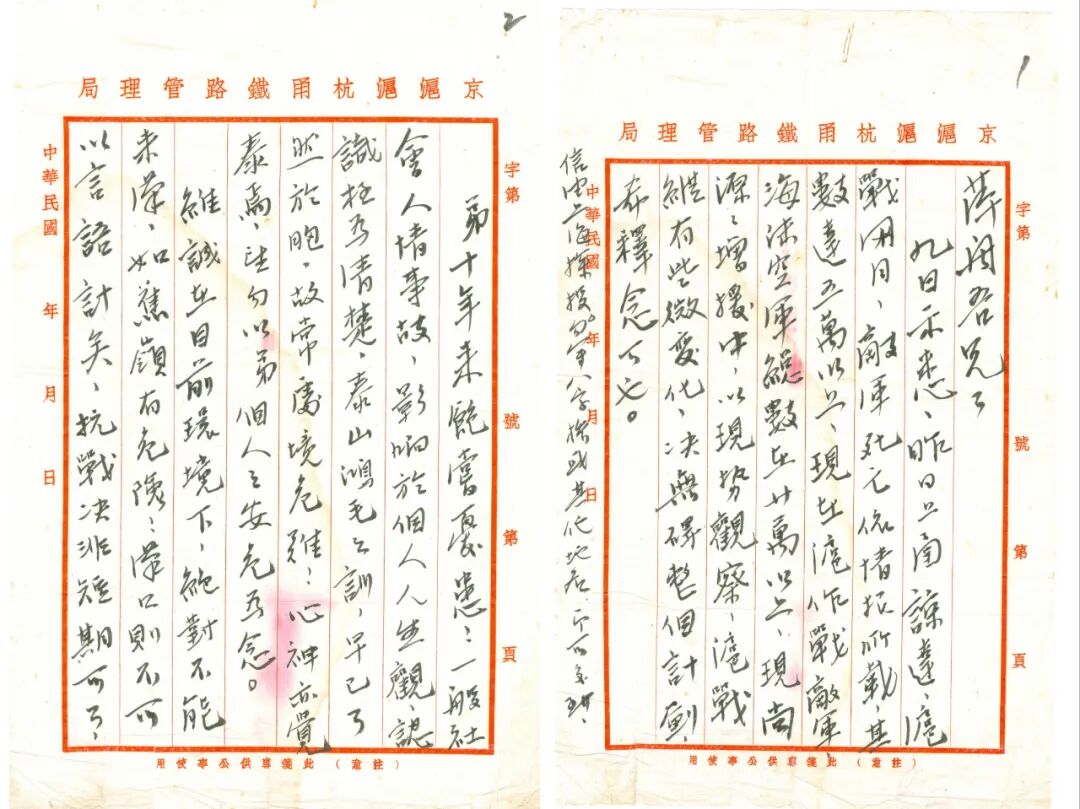 1
京滬滬杭甬鐵路管理局
字第 號 第 頁
吾兄：
九日示悉、昨日上函諒達、滬
戰閱月、敵軍死亡依情报所載、其
數達五萬以上、現在滬作戰敵軍、
海陸空軍總數在廿萬以上、現尚
源源增援中、以現势觀察、滬戰
縱有些微變化、决無礙整個計劃、
希釋念可也。
中華民國 年 月 日
信由上海探投 字樣或其他地名亦可
(注意) 此箋專供公事使用
2
京滬滬杭甬鐵路管理局
字第 號 第 頁
弟十年来飽嘗憂患；一般社
會人情事故，影响於個人人生觀，認
識極為清楚，泰山鴻毛之訓，早已了
然於胞，故常處境危難；心神亦覺
泰焉，請勿以弟個人之安危為念。
維誠在目前環境下，絕對不能
来漢，如蕉嶺有危險；漢口則不可
以言語計矣，抗戰决非短期可了，
中華民國 年 月 日
(注意) 此箋專供公事使用